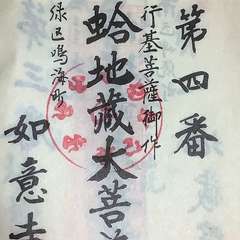 第四番
行基菩薩御作
蛤地蔵大菩
緑区鳴海町
如意